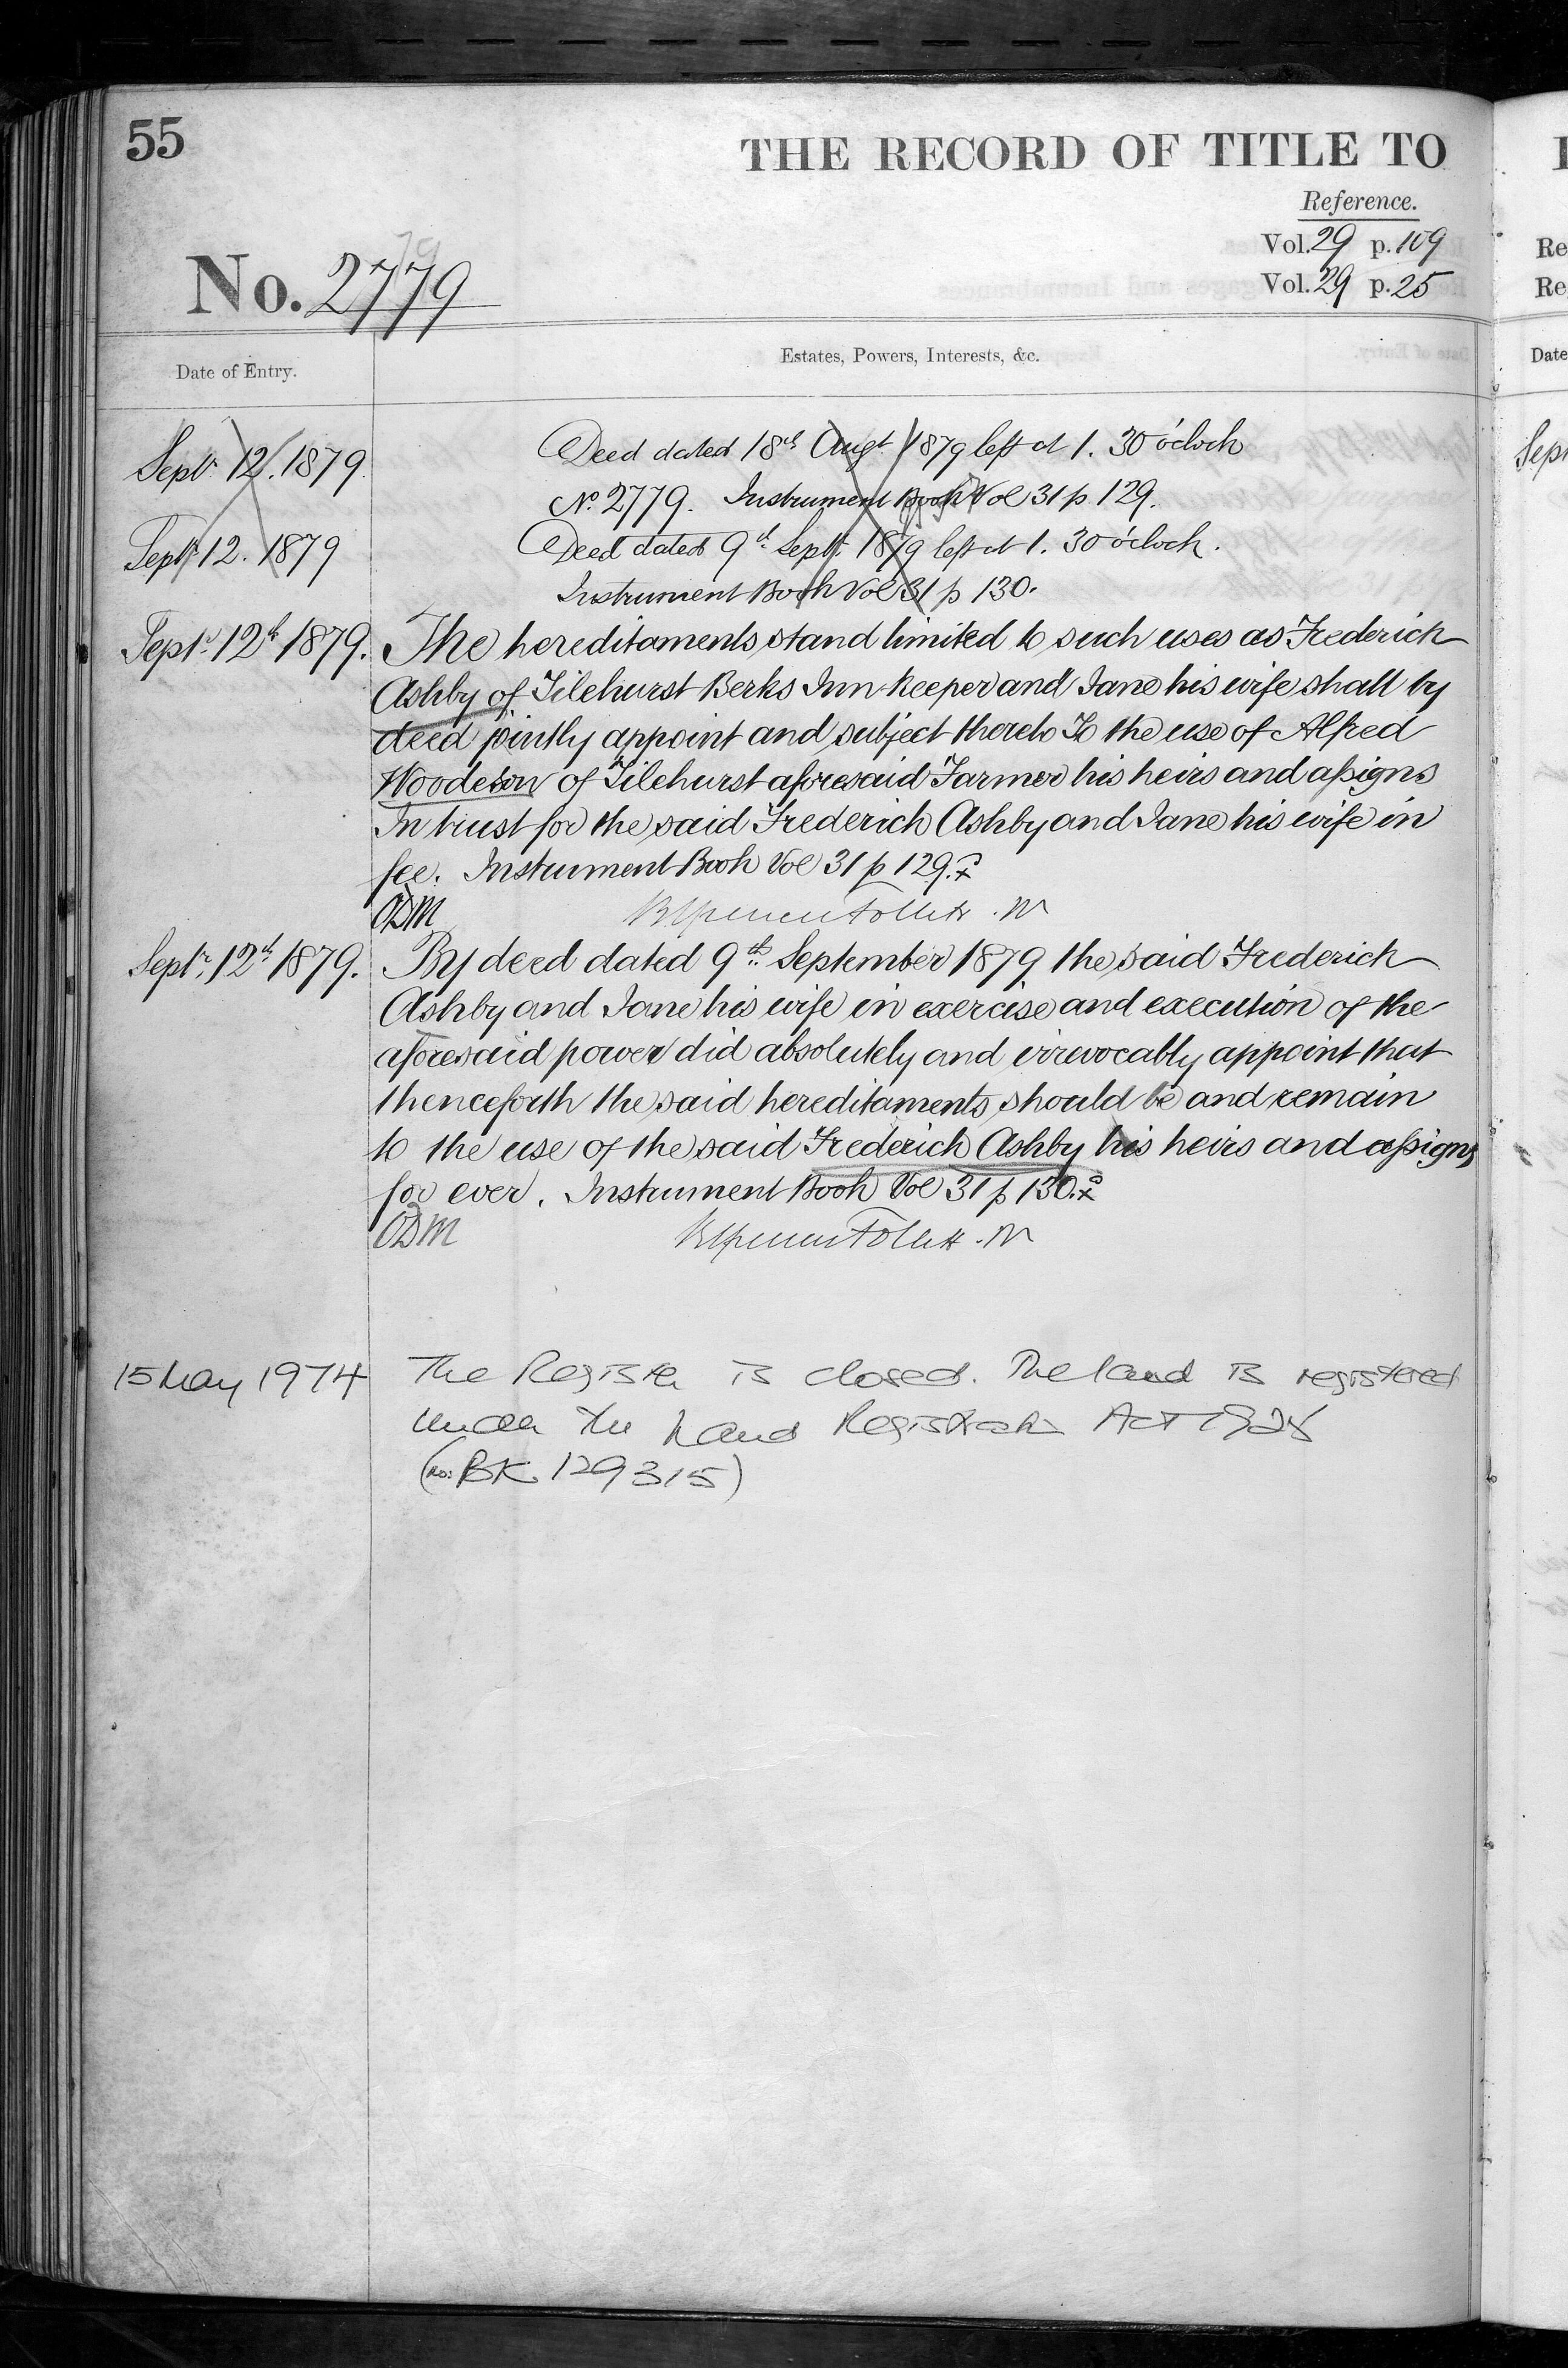 55
THE RECORD OF TITLE TO
Reference.
Vol. 29 p. 109
Vol. 29 p. 25
79
No. 2779
Date of Entry.
Estates, Powers, Interests, &c.
Septr. 12. 1879
Deed dated 18th Augt 1879 left at 1. 30 o'clock
No. 2779. Instrument Book Vol 31 p. 129.
Septr 12. 1879
Deed dated 9th Septr. 1879 left at 1. 30 o'clock.
Instrument Book Vol 31 p 130.
Septr. 12th 1879.
The hereditaments stand limited to such uses as Frederick
Ashby of Tilehurst Berks Inn-keeper and Jane his wife shall by
deed jointly appoint and subject thereto To the use of Alfred
Woodeson of Tilehurst aforesaid Farmer his heirs and assigns
In trust for the said Frederick Ashby and Jane his wife in
fee. Instrument Book Vol 31 p 129.
ODM
Septr. 12th 1879.
By deed dated 9th September 1879 the said Frederick
Ashby and Jane his wife in exercise and execution of the
aforesaid power did absolutely and irrevocably appoint that
thenceforth the said hereditaments should be and remain
to the use of the said Frederick Ashby his heirs and assigns
for ever. Instrument Book Vol 31 p 130.
ODM
15 May 1974
The Register is closed. The land is registered
under the Land Registration Act 1925
(No: BK 129315)
Re
Re
Date
Sept